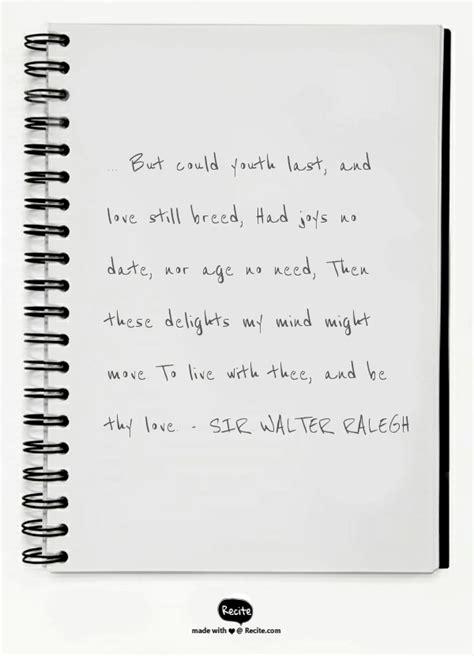 ... But could youth last, and
love still breed, Had joys no
date, nor age no need, Then
these delights my mind might
move To live with thee, and be
thy love. - SIR WALTER RALEGH
Recite
made with ❤ @ Recite.com